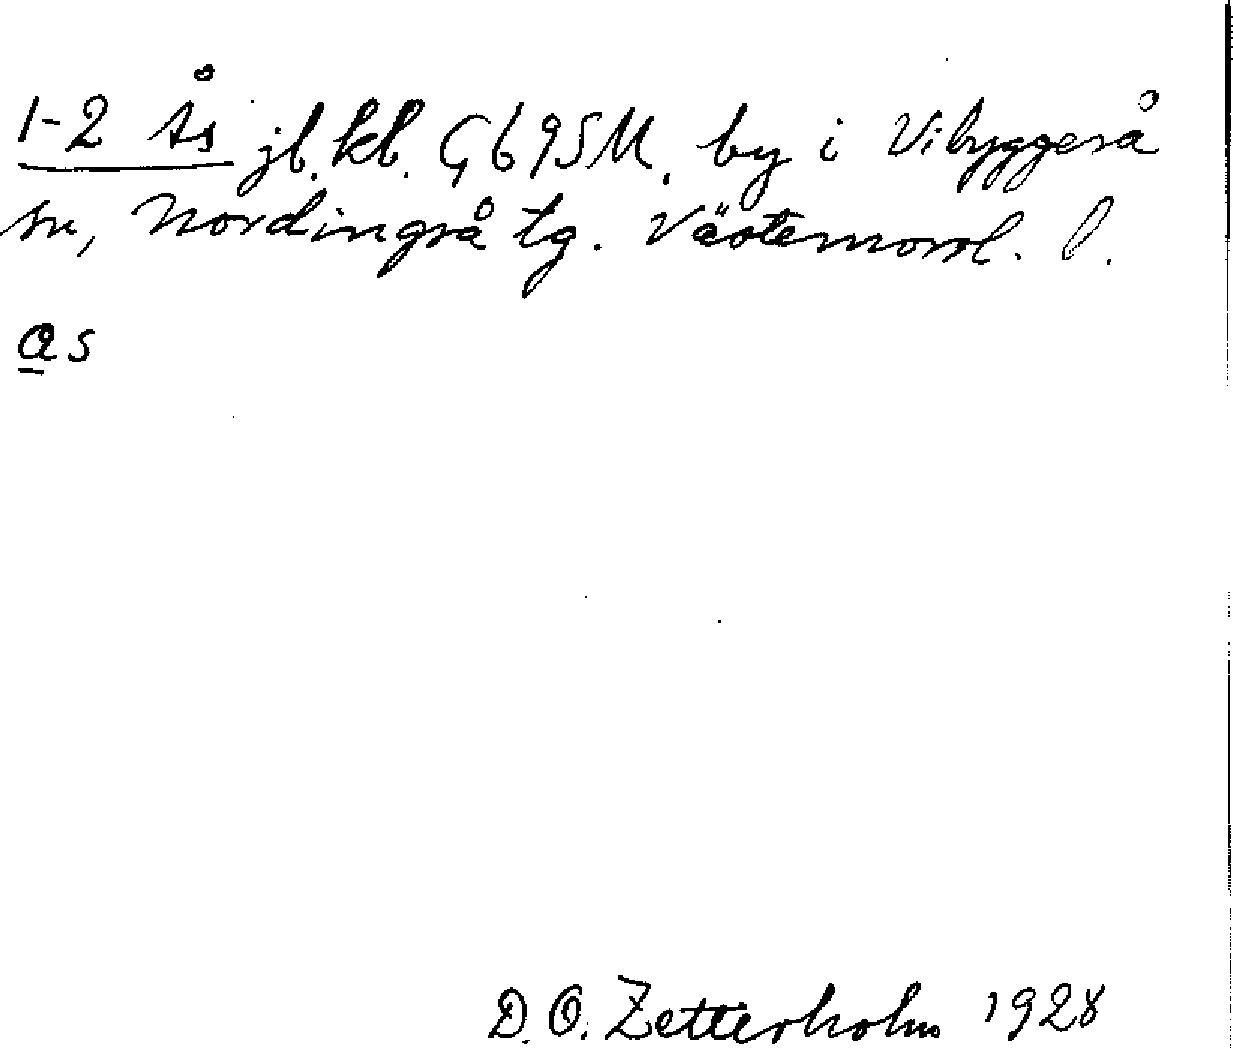 1-2 Ås jb. kb. G695M. by i Vibyggerå
sn, Nordingrå tg. Västernorrl. l.
as
D. O. Zetterholm 1928